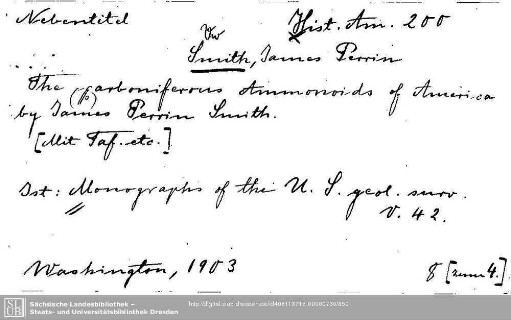 Nebentitel Hist. Am. 200
Vw
Smith, James Perrin
The carboniferous Ammonoids of America
by James Perrin Smith.
[Mit Taf. etc.]
Ist: Monographs of the U. S. geol. surv.
V. 42.
Washington, 1903 8 [zum 4.]
Sächsische Landesbibliothek –
Staats- und Universitätsbibliothek Dresden